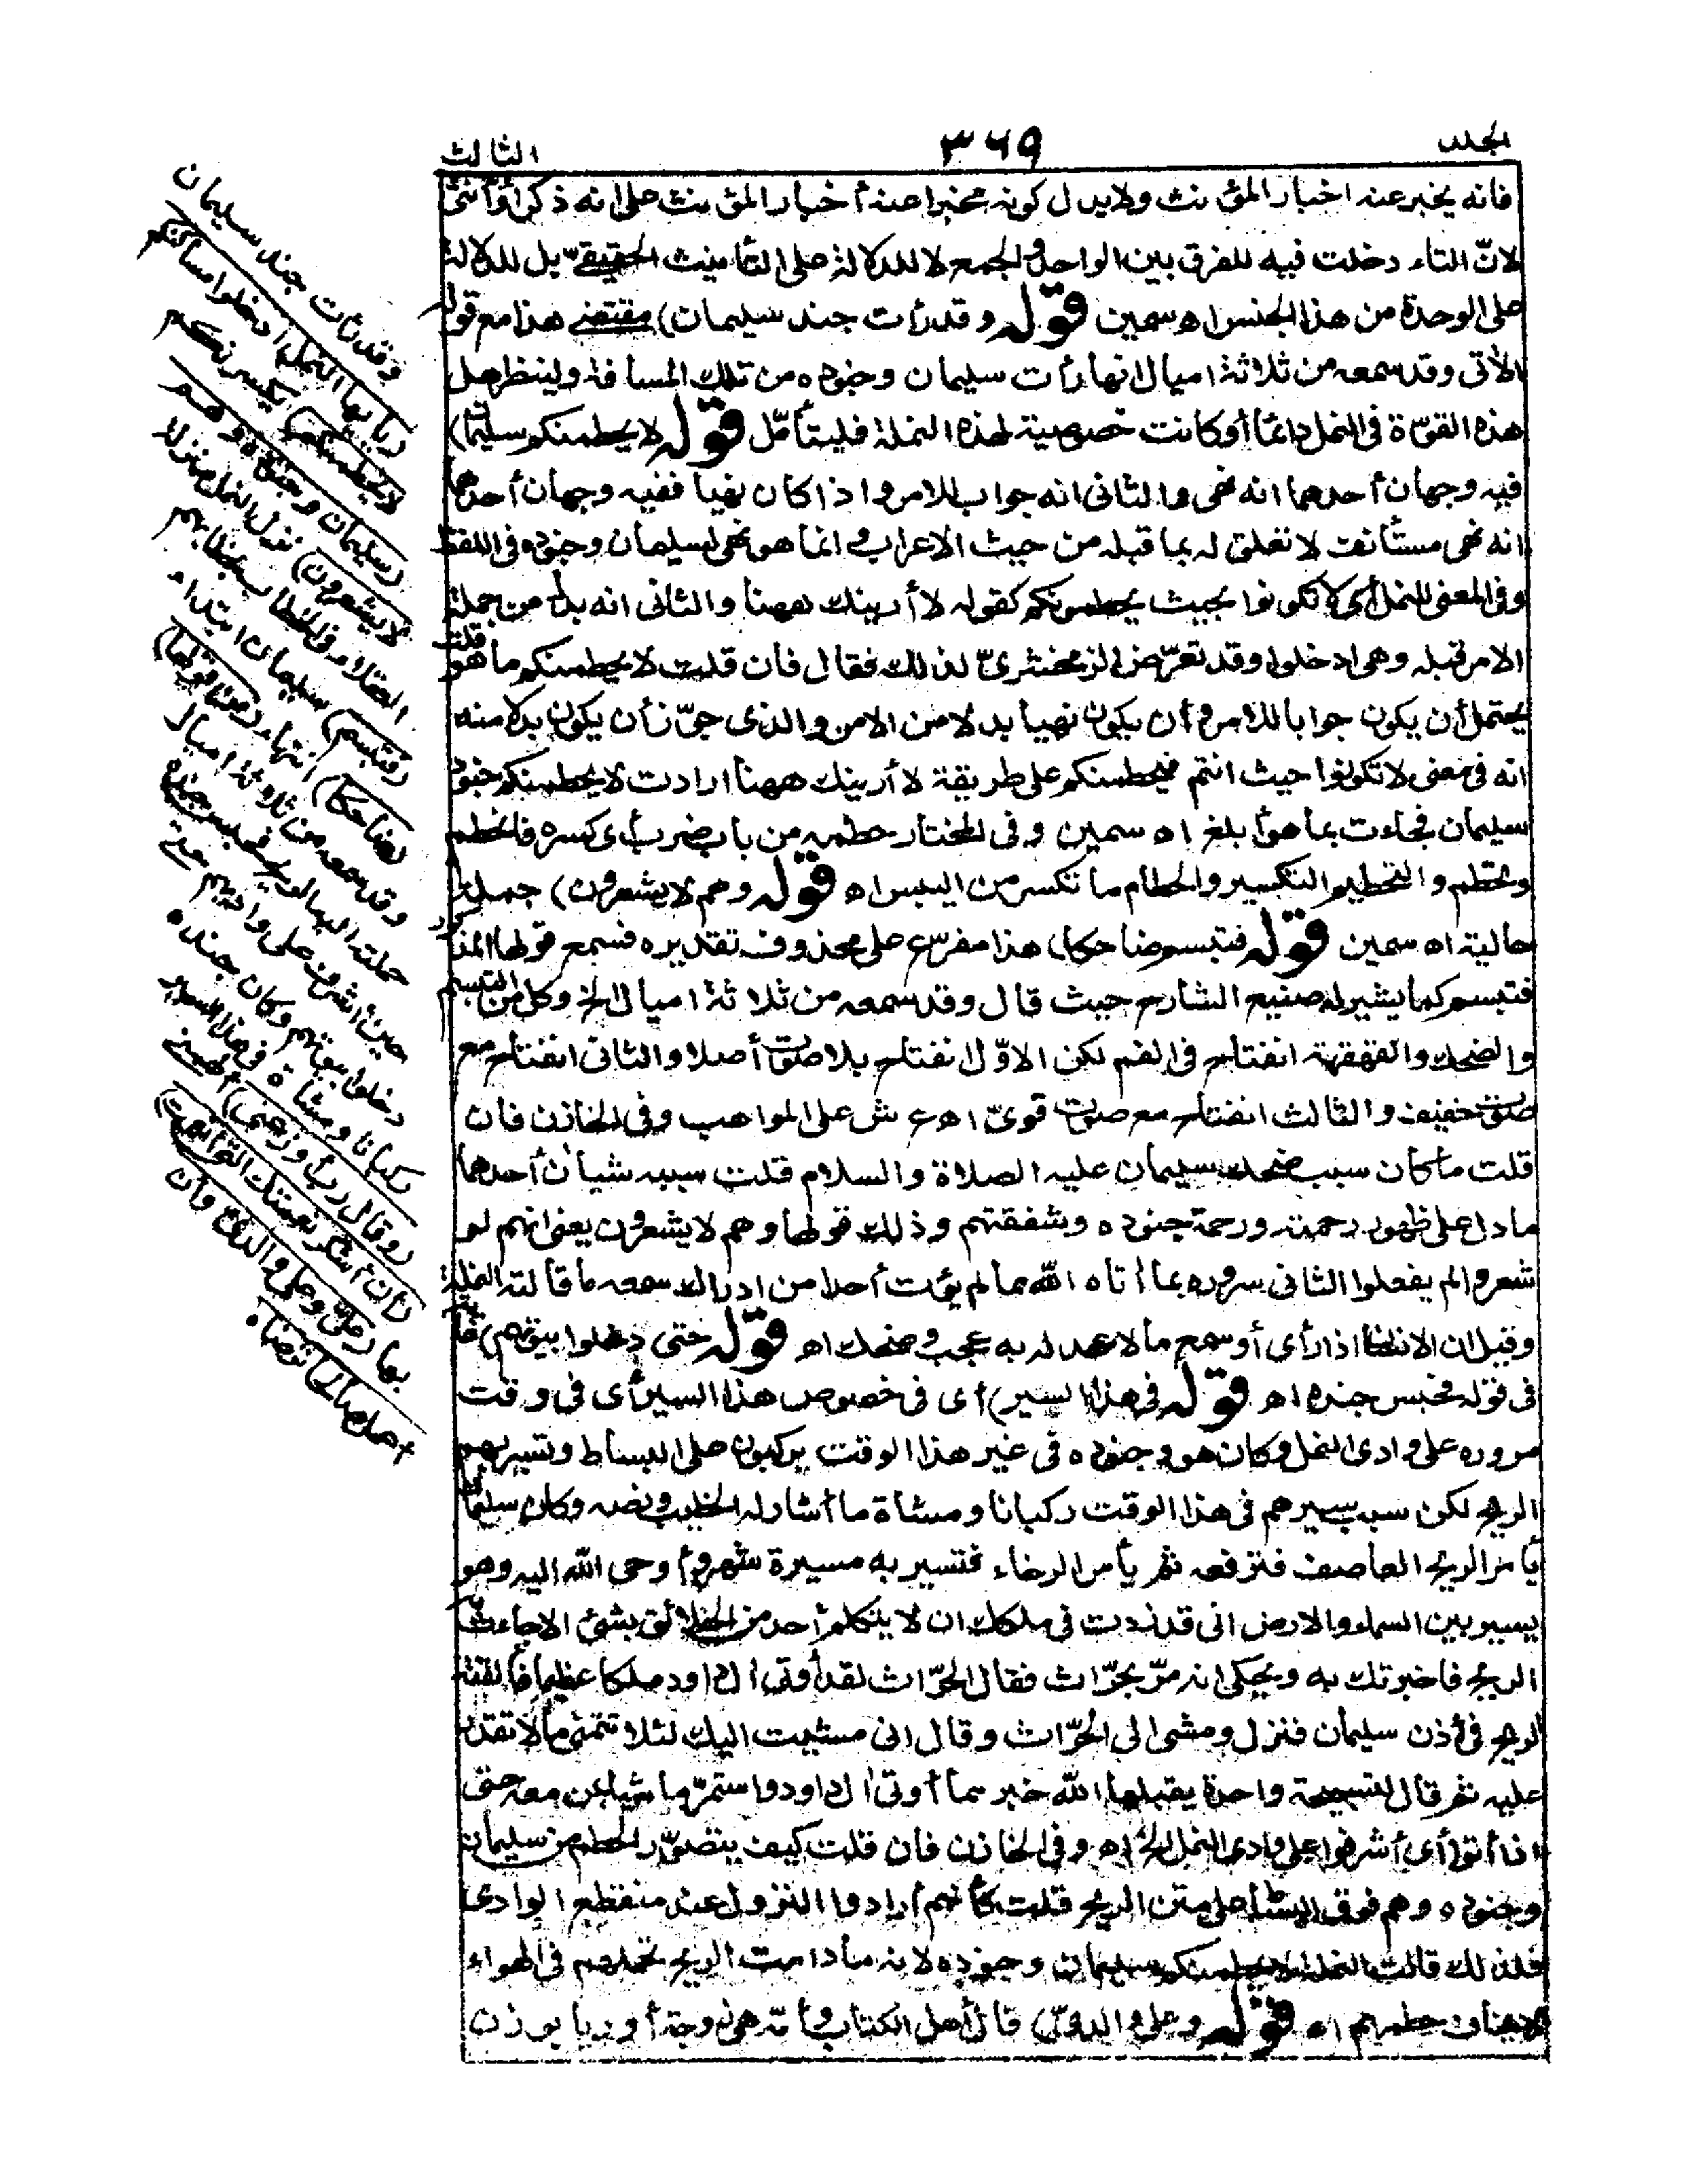 الجلد
٣٦٩
الثالث
فانه يخبر عنه اخبار المؤنث ولا يدل كونه مخبرا عنه أخبار المؤنث على انه ذكر أو أنثى
لانّ التاء دخلت فيه للفرق بين الواحد والجمع لا للدلالة على التأنيث الحقيقيّ بل للدلالة
على الوحدة من هذا الجنس اه سمين قوله وقد رأت جند سليمان) مقتضى هذا مع قوله
الآتى وقد سمعه من ثلاثة اميال انها رأت سليمان وجنوده من تلك المسافة ولينظر هل
هذه القوّة فى النمل دائما أو كانت خصوصية لهذه النملة فليتأمّل قوله لا يحطمنكم سليمان)
فيه وجهان أحدهما انه نهى والثانى انه جواب للامر واذا كان نهيا ففيه وجهان أحدهما
انه نهى مستأنف لا تعلق له بما قبله من حيث الاعراب وانما هو نهى لسليمان وجنوده فى اللفظ
وفى المعنى للنمل أى لا تكونوا بحيث يحطمونكم كقوله لا أرينك ههنا والثانى انه بدل من جملة
الامر قبله وهى ادخلوا وقد تعرّض الزمخشرىّ لذلك فقال فان قلت لا يحطمنكم ما هو قلت
يحتمل أن يكون جوابا للامر وأن يكون نهيا بدلا من الامر والذى جوّز أن يكون بدلا منه
انه فى معنى لا تكونوا حيث انتم فيحطمنكم على طريقة لا أرينك ههنا ارادت لا يحطمنكم جنود
سليمان فجاءت بما هو أبلغ اه سمين وفى المختار حطمه من باب ضرب أى كسره فانحطم
وتحطم والتحطيم التكسير والحطام ما تكسر من اليبس اه قوله وهم لا يشعرون) جملة
حالية اه سمين قوله فتبسم ضاحكا) هذا مفرّع على محذوف تقديره فسمع قولها المذكور
فتبسم كما يشير له صنيع الشارح حيث قال وقد سمعه من ثلاثة اميال الخ وكل من التبسم
والضحك والقهقهة انفتاح فى الفم لكن الاوّل انفتاح بلا صوت أصلا والثانى انفتاح مع
صوت خفيف والثالث انفتاح مع صوت قوىّ اه ع ش على المواهب وفى الخازن فان
قلت ما كان سبب ضحك سليمان عليه الصلاة والسلام قلت سببه شيآن أحدهما
ما دل على ظهور رحمته ورحمة جنوده وشفقتهم وذلك قولها وهم لا يشعرون يعنى انهم لو
شعروا لم يفعلوا الثانى سروره بما أتاه الله مما لم يؤت أحدا من ادراك سمعه ما قالته النملة
وقيل ان الانسان اذا رأى أو سمع ما لا عهد له به عجب وضحك اه قوله حتى دخلوا بيوتهم) غاية
فى قوله فحبس جنده اه قوله فى هذا السير) أى فى خصوص هذا السير أى فى وقت
مروره على وادى النمل وكان هو وجنوده فى غير هذا الوقت يركبون على البساط وتسير بهم
الريح لكن سبب سيرهم فى هذا الوقت ركبانا ومشاة ما أشار له الخطيب ونصه وكان سليمان
يأمر الريح العاصف فترفعه ثم يأمر الرخاء فتسير به مسيرة شهر وأوحى الله اليه وهو
يسير بين السماء والارض انى قد زدت فى ملكك ان لا يتكلم أحد من الخلائق بشئ الا جاءت به
الريح فاخبرتك به ويحكى انه مرّ بحرّاث فقال الحرّاث لقد أوتى آل داود ملكا عظيما فألقته
الريح فى أذن سليمان فنزل ومشى الى الحرّاث وقال انى مشيت اليك لئلا تتمنى ما لا تقدر
عليه ثم قال لتسبيحة واحدة يقبلها الله خير مما أوتى آل داود واستمرّ ماشيا بمن معه حتى
اذا أتوا أى أشرفوا على وادى النمل الخ اه وفى الخازن فان قلت كيف يتصوّر الحطم من سليمان
وجنوده وهم فوق البساط على متن الريح قلت كأنهم أرادوا النزول عند منقطع الوادى
فلذلك قالت النملة لا يحطمنكم سليمان وجنوده لانه ما دامت الريح تحملهم فى الهواء
لا يخاف حطمهم اه قوله وعلى والدىّ) قال أهل الكتاب وأمّه هى زوجة أوريا بوزن
وقد رأت جند سليمان
(يا أيها النمل ادخلوا مساكنكم
لا يحطمنكم) يكسرنكم
(سليمان وجنوده وهم
لا يشعرون) نزل النمل منزلة
العقلاء فى الخطاب بخطابهم
(فتبسم) سليمان ابتداء
(ضاحكا) انتهاء (من قولها)
وقد سمعه من ثلاثة اميال
حملته اليه الريح فحبس جنده
حين أشرف على واديهم حتى
دخلوا بيوتهم وكان جنده
ركبانا ومشاة فى هذا السير
(وقال رب أوزعنى) ألهمنى
(أن أشكر نعمتك التى أنعمت)
بها (علىّ وعلى والدىّ وأن
أعمل صالحا ترضاه